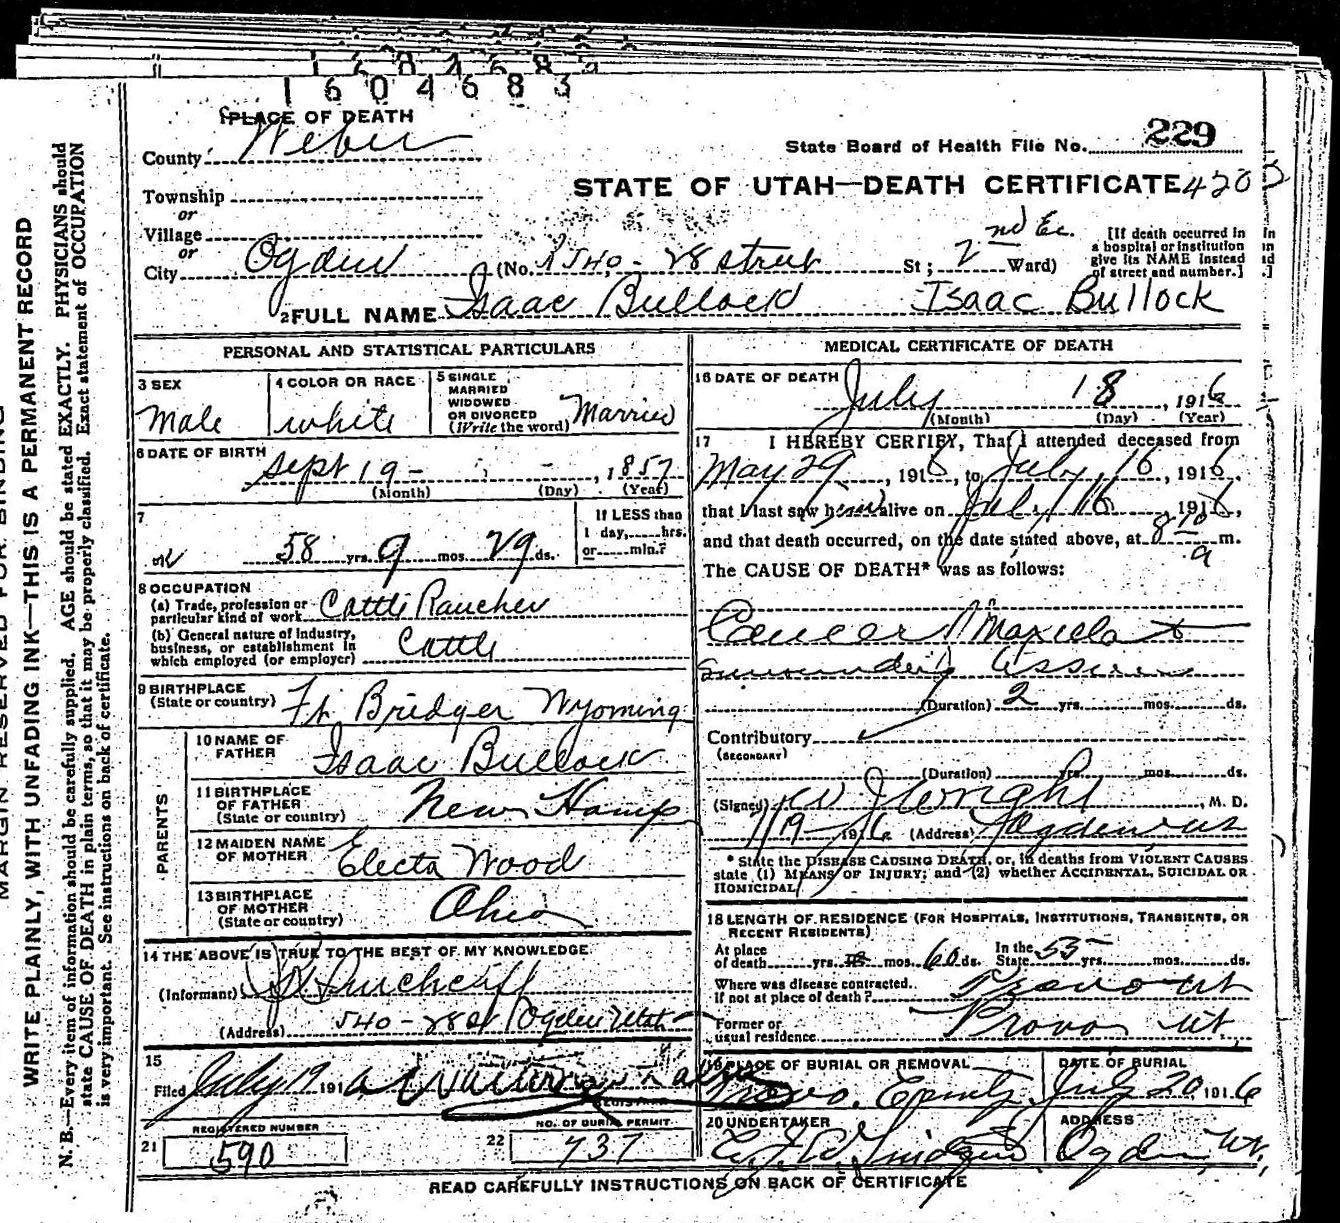 1604683
PLACE OF DEATH
County Weber
State Board of Health File No. 229
STATE OF UTAH—DEATH CERTIFICATE 420
Township
or
Village
or
City Ogden (No. 540 - 28 street St; 2nd Ward)
[If death occurred in a hospital or institution give its NAME instead of street and number.]
2 FULL NAME Isaac Bullock Isaac Bullock
PERSONAL AND STATISTICAL PARTICULARS
3 SEX Male
4 COLOR OR RACE white
5 SINGLE MARRIED WIDOWED OR DIVORCED (Write the word) Married
6 DATE OF BIRTH Sept 19 - 1857
(Month) (Day) (Year)
7
58 yrs. 9 mos. 29 ds.
If LESS than 1 day, hrs. or min.?
8 OCCUPATION
(a) Trade, profession or particular kind of work Cattle Rancher
(b) General nature of industry, business, or establishment in which employed (or employer) Cattle
9 BIRTHPLACE (State or country) Ft. Bridger Wyoming
PARENTS
10 NAME OF FATHER Isaac Bullock
11 BIRTHPLACE OF FATHER (State or country) New Hamp
12 MAIDEN NAME OF MOTHER Electa Wood
13 BIRTHPLACE OF MOTHER (State or country) Ohio
14 THE ABOVE IS TRUE TO THE BEST OF MY KNOWLEDGE
(Informant)
(Address) 540 - 28 st Ogden Utah
15
Filed July 19 191
REGISTRAR
REGISTERED NUMBER
21 590
NO. OF BURIAL PERMIT
22 737
MEDICAL CERTIFICATE OF DEATH
16 DATE OF DEATH July 18, 1916
(Month) (Day) (Year)
17 I HEREBY CERTIFY, That I attended deceased from
May 29, 1916, to July 16, 1916,
that I last saw him alive on July 16, 1916,
and that death occurred, on the date stated above, at 8 10 a m.
The CAUSE OF DEATH* was as follows:
Cancer Maxilla +
surrounding
(Duration) 2 yrs. mos. ds.
Contributory
(SECONDARY)
(Duration) yrs. mos. ds.
(Signed) Wright, M. D.
19 - 1916 (Address) Ogden Ut
* State the DISEASE CAUSING DEATH, or, in deaths from VIOLENT CAUSES
state (1) MEANS OF INJURY; and (2) whether ACCIDENTAL, SUICIDAL OR
HOMICIDAL
18 LENGTH OF RESIDENCE (FOR HOSPITALS, INSTITUTIONS, TRANSIENTS, OR
RECENT RESIDENTS)
At place of death yrs. mos. 60 ds. In the State 55 yrs. mos. ds.
Where was disease contracted, if not at place of death? Provo Ut
Former or usual residence Provo Ut.
19 PLACE OF BURIAL OR REMOVAL Provo
DATE OF BURIAL July 20, 1916
20 UNDERTAKER
ADDRESS Ogden, Ut.
READ CAREFULLY INSTRUCTIONS ON BACK OF CERTIFICATE
MARGIN RESERVED FOR BINDING
WRITE PLAINLY, WITH UNFADING INK—THIS IS A PERMANENT RECORD
N. B.—Every item of information should be carefully supplied. AGE should be stated EXACTLY. PHYSICIANS should
state CAUSE OF DEATH in plain terms, so that it may be properly classified. Exact statement of OCCUPATION
is very important. See instructions on back of certificate.